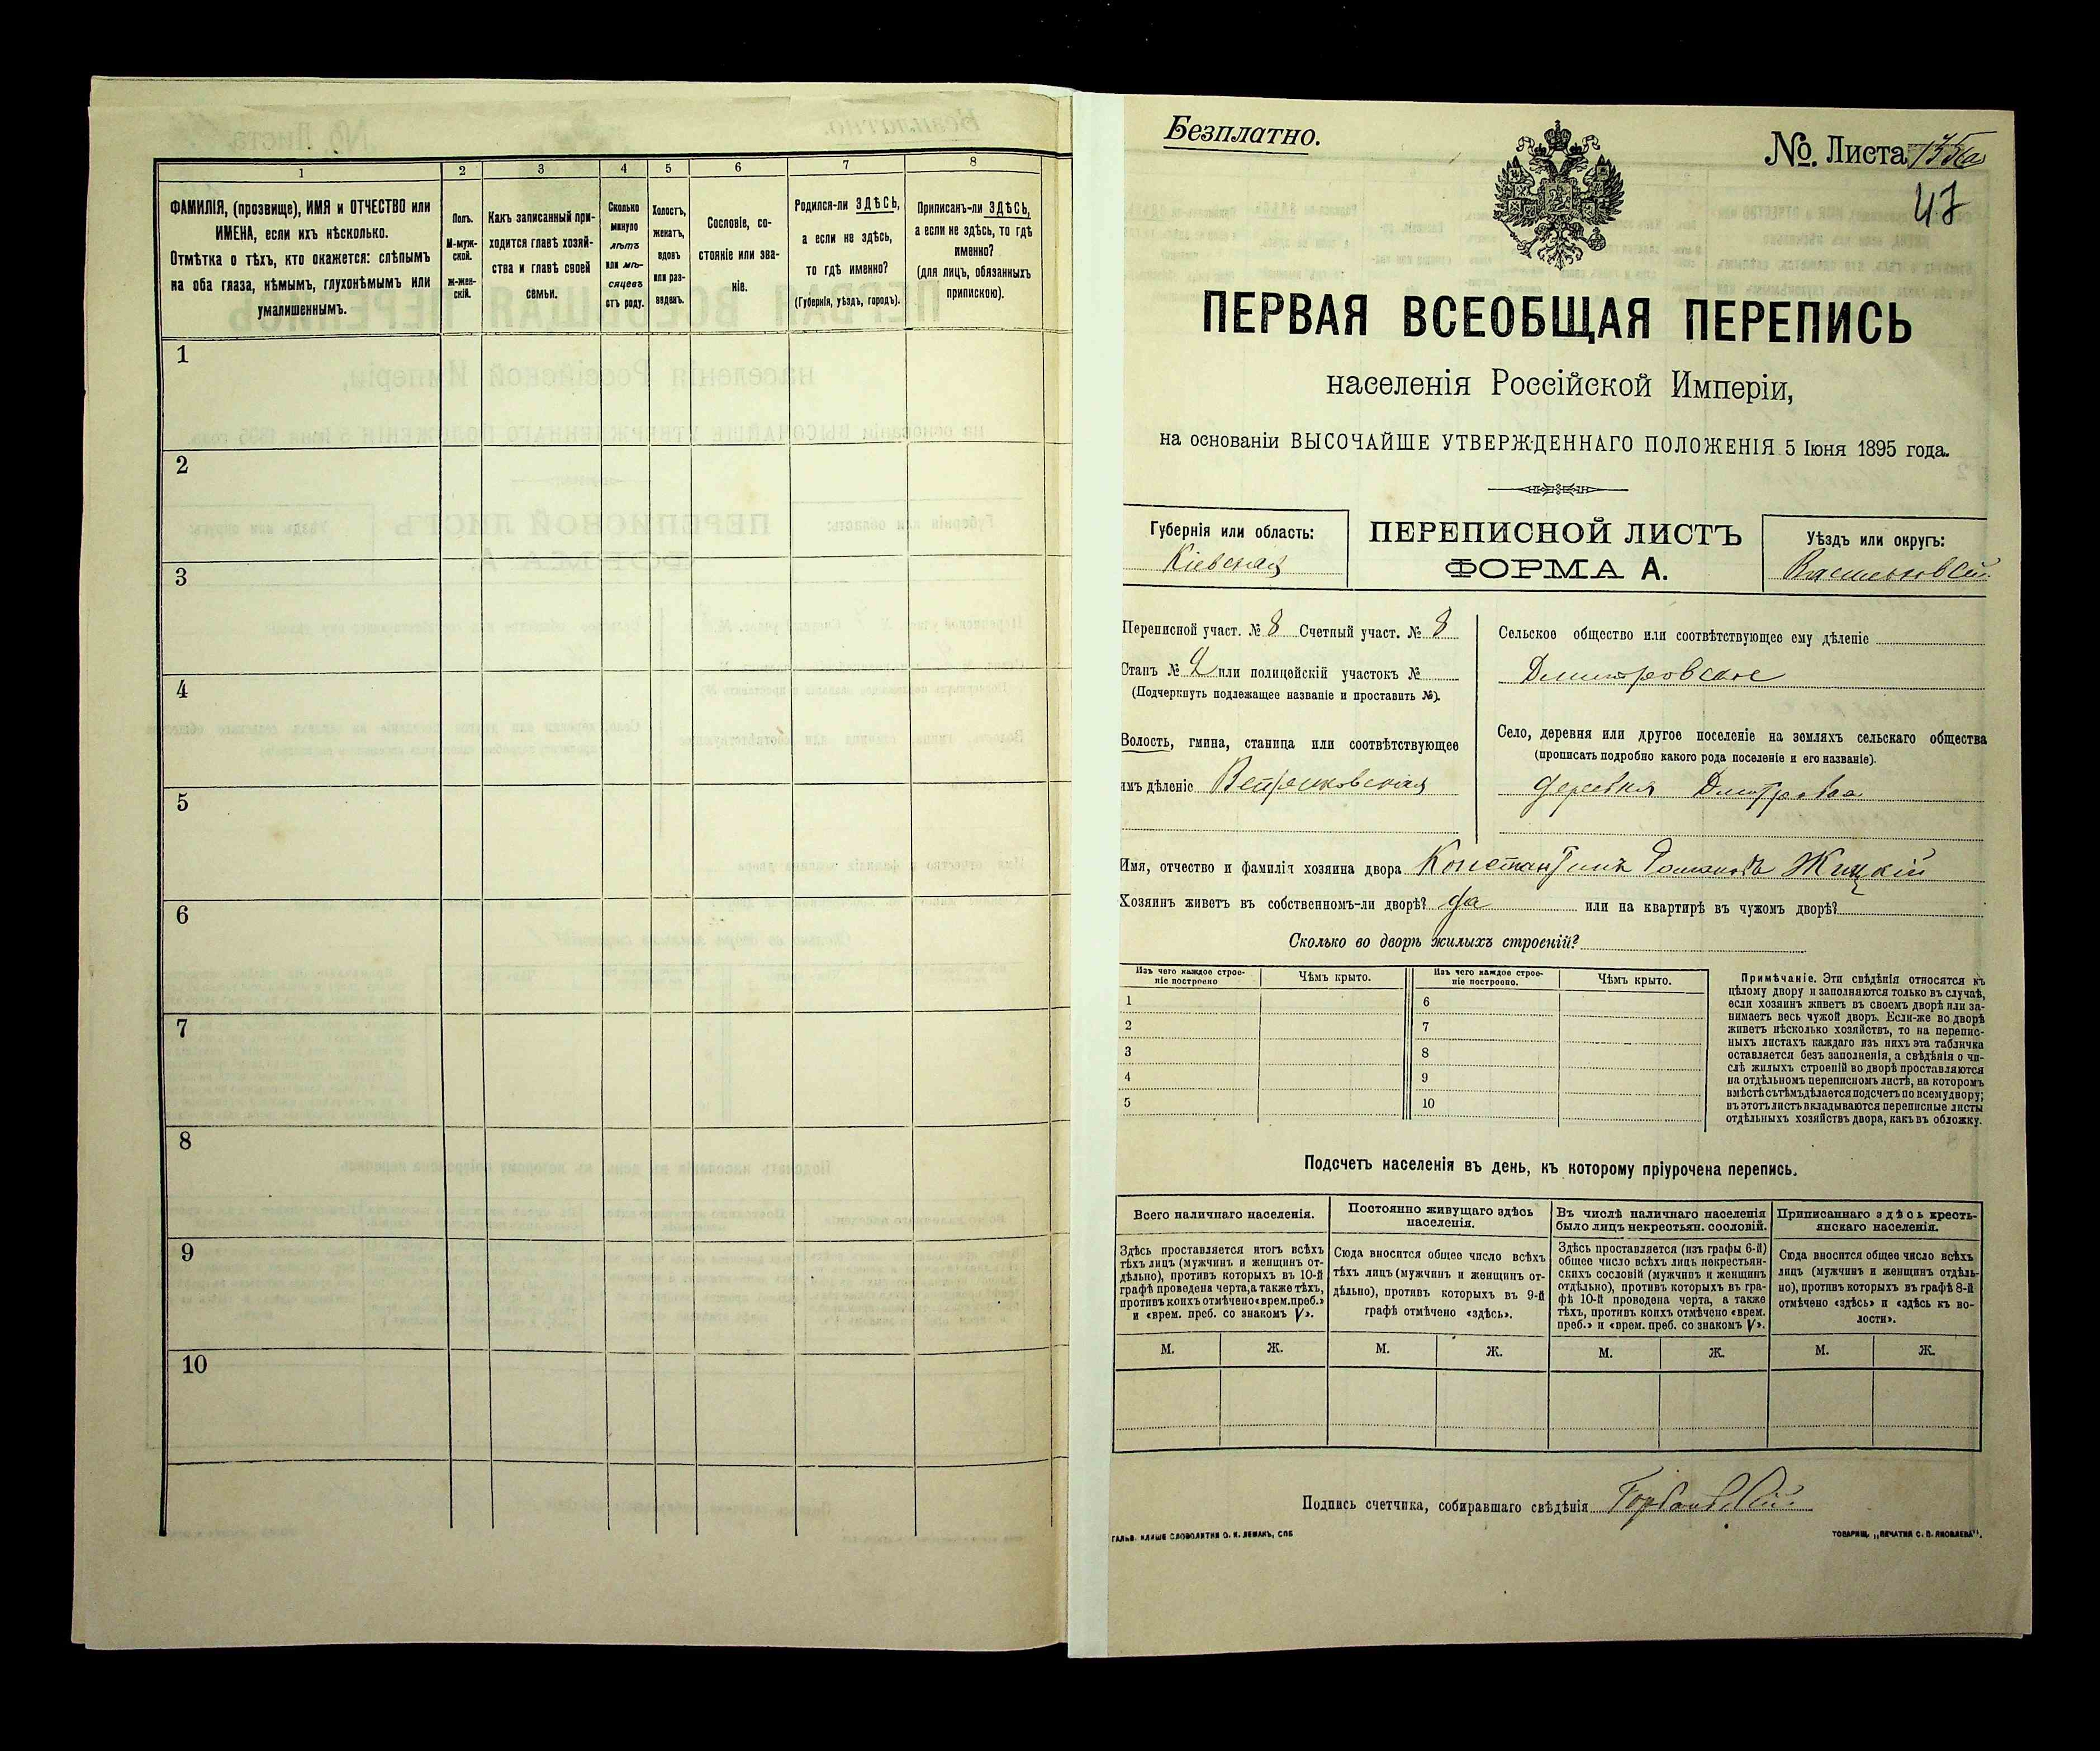 1
2
3
4
5
6
7
8
ФАМИЛІЯ, (прозвище), ИМЯ и ОТЧЕСТВО или
ИМЕНА, если ихъ нѣсколько.
Отмѣтка о тѣхъ, кто окажется: слѣпымъ
на оба глаза, нѣмымъ, глухонѣмымъ или
умалишеннымъ.
Полъ.
М-муж-
ской.
ж-жен-
скій.
Какъ записанный при-
ходится главѣ хозяй-
ства и главѣ своей
семьи.
Сколько
минуло
лѣтъ
или мѣ-
сяцевъ
отъ роду.
Холостъ,
женатъ,
вдовъ
или раз-
веденъ.
Сословіе, со-
стояніе или зва-
ніе.
Родился-ли ЗДѢСЬ,
а если не здѣсь,
то гдѣ именно?
(Губернія, уѣздъ, городъ).
Приписанъ-ли ЗДѢСЬ,
а если не здѣсь, то гдѣ
именно?
(для лицъ, обязанныхъ
припискою).
1
2
3
4
5
6
7
8
9
10
Безплатно.
№. Листа
47
ПЕРВАЯ ВСЕОБЩАЯ ПЕРЕПИСЬ
населенія Россійской Имперіи,
на основаніи ВЫСОЧАЙШЕ УТВЕРЖДЕННАГО ПОЛОЖЕНІЯ 5 Іюня 1895 года.
Губернія или область:
Кіевская
ПЕРЕПИСНОЙ ЛИСТЪ
ФОРМА А.
Уѣздъ или округъ:
Васильковскій
Переписной участ. № 8 Счетный участ. № 8
Станъ № 2 или полицейскій участокъ №
(Подчеркнуть подлежащее названіе и проставить №).
Волость, гмина, станица или соотвѣтствующее
имъ дѣленіе
Сельское общество или соотвѣтствующее ему дѣленіе
Дмитровское
Село, деревня или другое поселеніе на земляхъ сельскаго общества
(прописать подробно какого рода поселеніе и его названіе).
деревня Дмитровка
Имя, отчество и фамилія хозяина двора Константинъ Романовъ Жицкій
Хозяинъ живетъ въ собственномъ-ли дворѣ? да или на квартирѣ въ чужомъ дворѣ?
Сколько во дворѣ жилыхъ строеній?
Изъ чего каждое строе-
ніе построено
Чѣмъ крыто.
Изъ чего каждое строе-
ніе построено.
Чѣмъ крыто.
1
2
3
4
5
6
7
8
9
10
Примѣчаніе. Эти свѣдѣнія относятся къ
цѣлому двору и заполняются только въ случаѣ,
если хозяинъ живетъ въ своемъ дворѣ или за-
нимаетъ весь чужой дворъ. Если-же во дворѣ
живетъ нѣсколько хозяйствъ, то на перепис-
ныхъ листахъ каждаго изъ нихъ эта табличка
оставляется безъ заполненія, а свѣдѣнія о чи-
слѣ жилыхъ строеній во дворѣ проставляются
на отдѣльномъ переписномъ листѣ, на которомъ
вмѣстѣ съ тѣмъ дѣлается подсчетъ по всему двору;
въ этотъ листъ вкладываются переписные листы
отдѣльныхъ хозяйствъ двора, какъ въ обложку.
Подсчетъ населенія въ день, къ которому пріурочена перепись.
Всего наличнаго населенія.
Здѣсь проставляется итогъ всѣхъ
тѣхъ лицъ (мужчинъ и женщинъ от-
дѣльно), противъ которыхъ въ 10-й
графѣ проведена черта, а также тѣхъ,
противъ коихъ отмѣчено «врем. преб.»
и «врем. преб. со знакомъ V».
Постоянно живущаго здѣсь
населенія.
Сюда вносится общее число всѣхъ
тѣхъ лицъ (мужчинъ и женщинъ от-
дѣльно), противъ которыхъ въ 9-й
графѣ отмѣчено «здѣсь».
Въ числѣ наличнаго населенія
было лицъ некрестьян. сословій.
Здѣсь проставляется (изъ графы 6-й)
общее число всѣхъ лицъ некрестьян-
скихъ сословій (мужчинъ и женщинъ
отдѣльно), противъ которыхъ въ гра-
фѣ 10-й проведена черта, а также
тѣхъ, противъ коихъ отмѣчено «врем.
преб.» и «врем. преб. со знакомъ V».
Приписаннаго здѣсь кресть-
янскаго населенія.
Сюда вносится общее число всѣхъ
лицъ (мужчинъ и женщинъ отдѣль-
но), противъ которыхъ въ графѣ 8-й
отмѣчено «здѣсь» и «здѣсь къ во-
лости».
М. Ж. М. Ж. М. Ж. М. Ж.
Подпись счетчика, собиравшаго свѣдѣнія
ГАЛЬВ. КЛИШЕ СЛОВОЛИТНИ О. И. ЛЕМАНЪ, СПБ
ТОВАРИЩ. „ПЕЧАТНЯ С. П. ЯКОВЛЕВА".